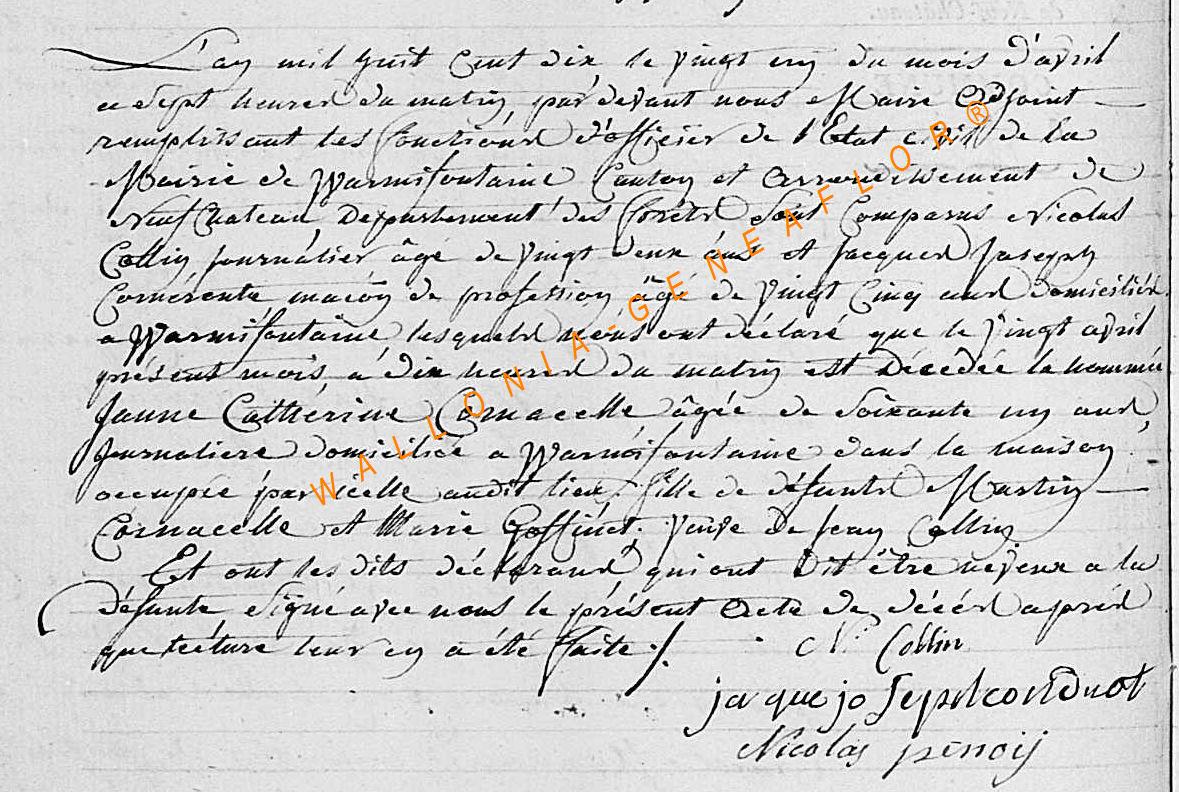 L'an mil huit Cent dix le vingt un du mois d'avril
a Sept heures du matin par devant nous Maire Adjoint
remplissant les fonctions d'officier de l'Etat civil de la
Mairie de Warmifontaine Canton et Arrondissement de
Neufchateau Département des forêts Sont Comparus Nicolas
Collin Journalier âgé de vingt deux ans et Jacques Joseph
maçon de profession âgé de vingt Cinq ans domiciliés
a Warmifontaine lesquels nous ont déclaré que le vingt avril
présent mois, a dix heures du matin est Décedée la nommée
Janne Cathérine Cornacelle âgée de Soixante un ans
Journaliere domiciliée a Warmifontaine dans la maison
occupée par icelle audit lieu, fille de défunts Martin
Cornacelle et Marie Goffinet, veuve De Jean Collin
Et ont les dits déclarans qui ont Dit être neveux a la
défunte Signé avec nous le présent Acte de décés aprés
que lecture leur en a été faite ./.
N. Collin
jacque joseph
Nicolas penoij
WALLONIA-GENEAFLOR®